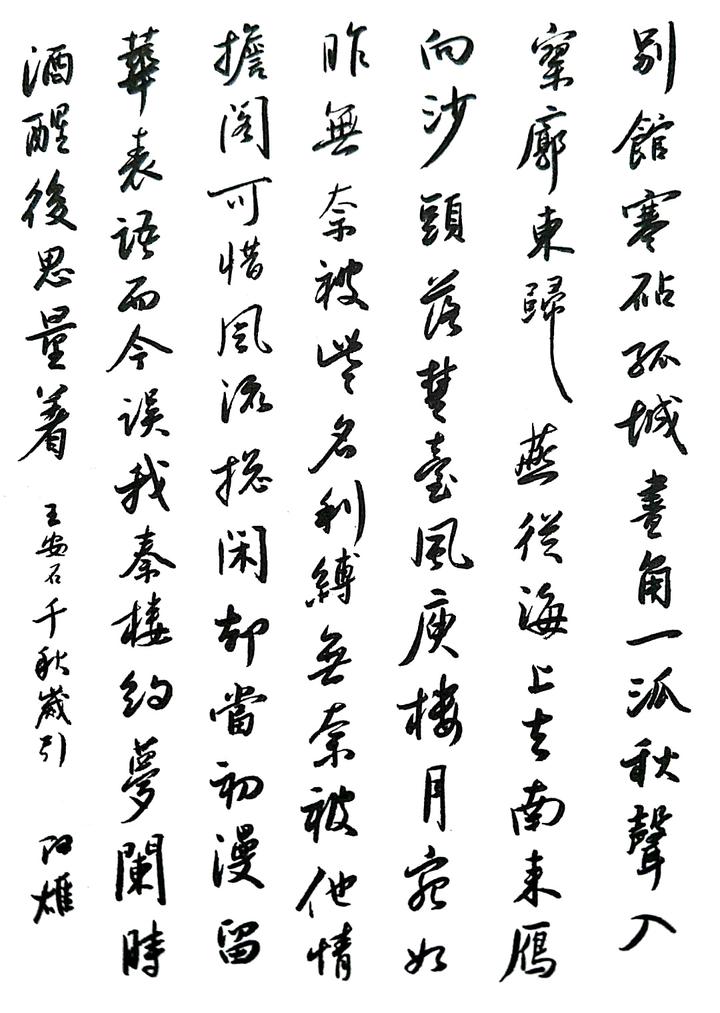 別館寒砧孤城畫角一派秋聲入
寥廓東歸燕從海上去南來雁
向沙頭落楚臺風庾樓月宛如
昨無奈被些名利縛無奈被他情
擔閣可惜風流總閑却當初漫留
華表語而今誤我秦樓約夢闌時
酒醒後思量着
王安石千秋歲引
雄